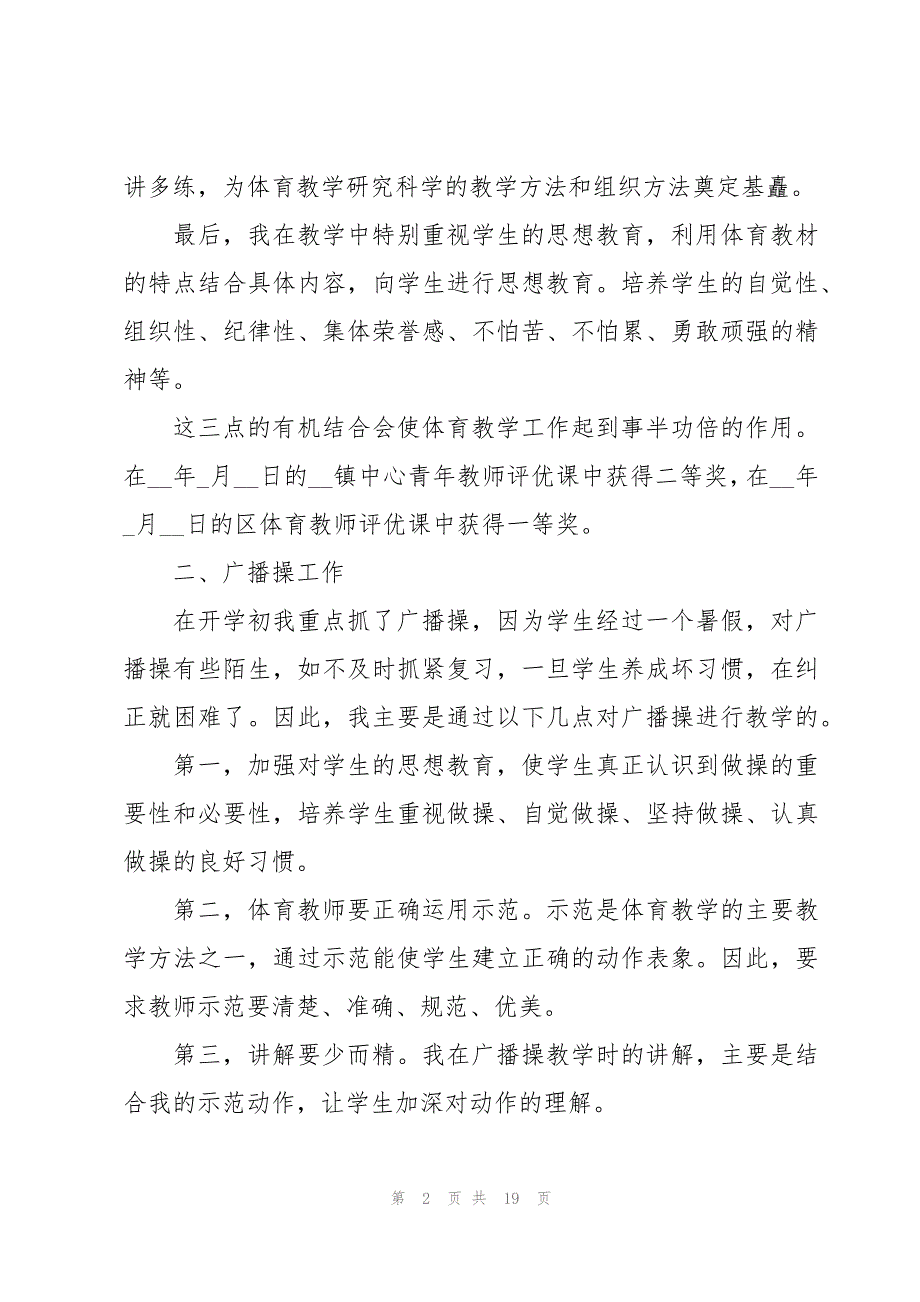 讲多练，为体育教学研究科学的教学方法和组织方法奠定基矗。
最后，我在教学中特别重视学生的思想教育，利用体育教材
的特点结合具体内容，向学生进行思想教育。培养学生的自觉性、
组织性、纪律性、集体荣誉感、不怕苦、不怕累、勇敢顽强的精
神等。
这三点的有机结合会使体育教学工作起到事半功倍的作用。
在__年_月__日的__镇中心青年教师评优课中获得二等奖，在__年
_月__日的区体育教师评优课中获得一等奖。
二、广播操工作
在开学初我重点抓了广播操，因为学生经过一个暑假，对广
播操有些陌生，如不及时抓紧复习，一旦学生养成坏习惯，在纠
正就困难了。因此，我主要是通过以下几点对广播操进行教学的。
第一，加强对学生的思想教育，使学生真正认识到做操的重
要性和必要性，培养学生重视做操、自觉做操、坚持做操、认真
做操的良好习惯。
第二，体育教师要正确运用示范。示范是体育教学的主要教
学方法之一，通过示范能使学生建立正确的动作表象。因此，要
求教师示范要清楚、准确、规范、优美。
第三，讲解要少而精。我在广播操教学时的讲解，主要是结
合我的示范动作，让学生加深对动作的理解。
第 2 页 共 19 页